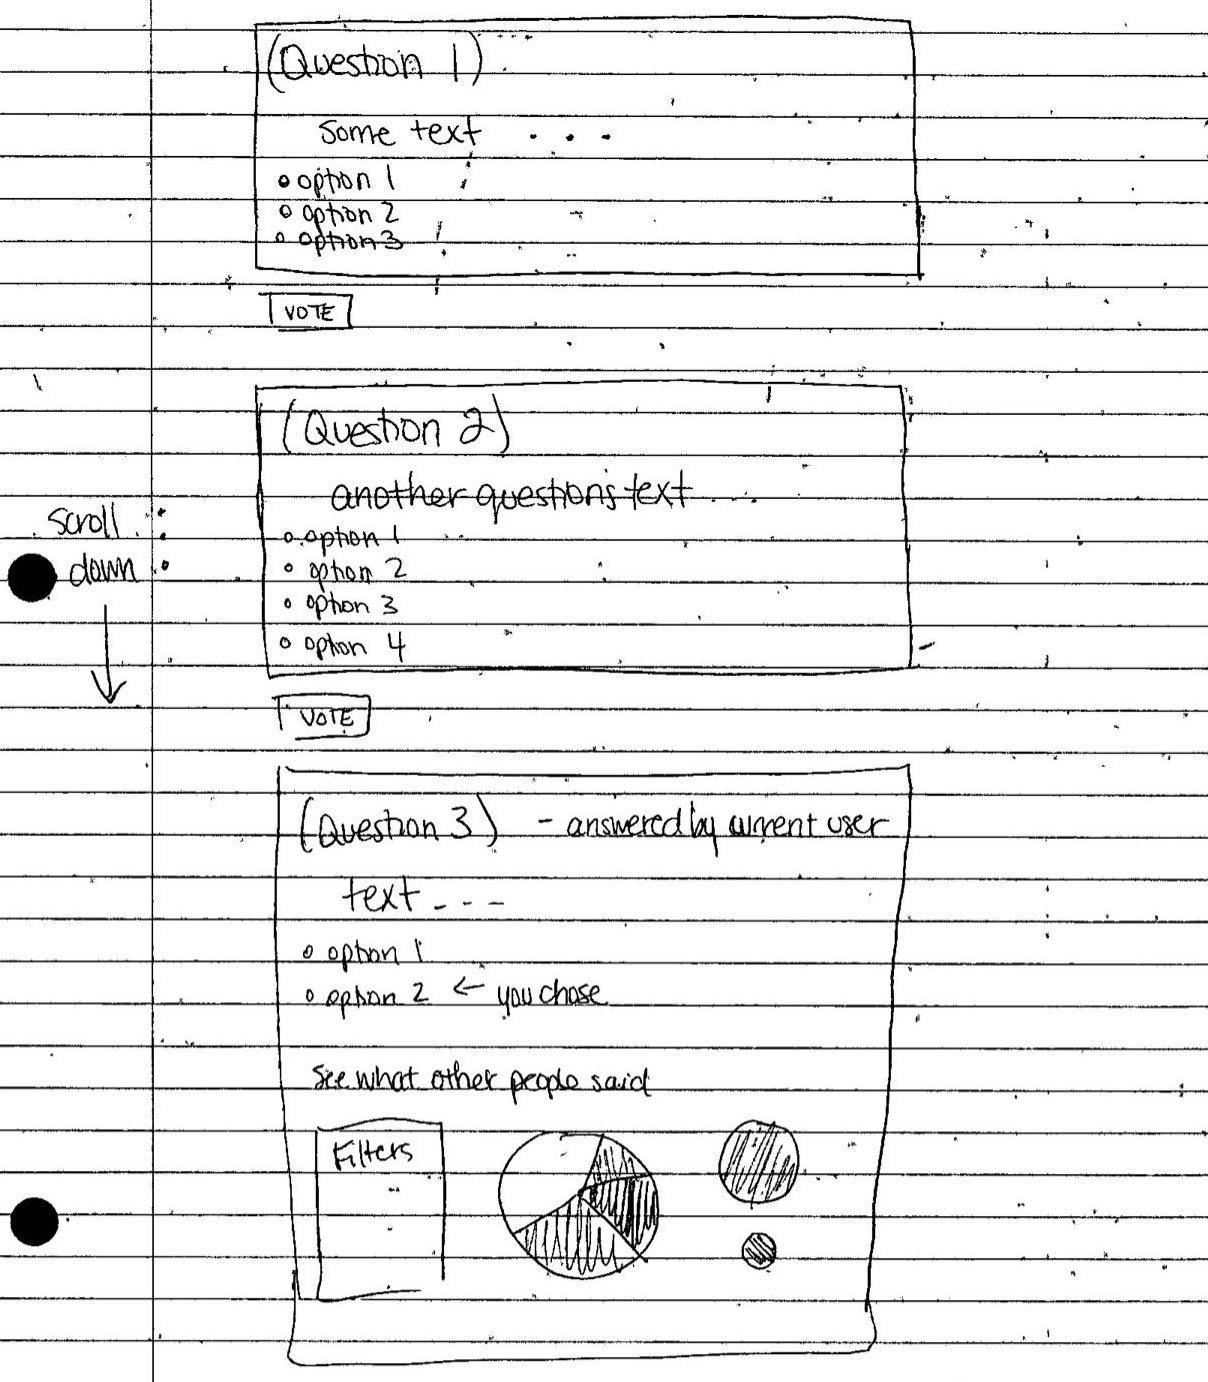 (Question 1)
some text . . .
option 1
option 2
option 3
VOTE
(Question 2)
another questions text ...
option 1
option 2
option 3
option 4
scroll
down
VOTE
(Question 3) - answered by current user
text - - -
option 1
option 2 ← you chose
See what other people said
Filters